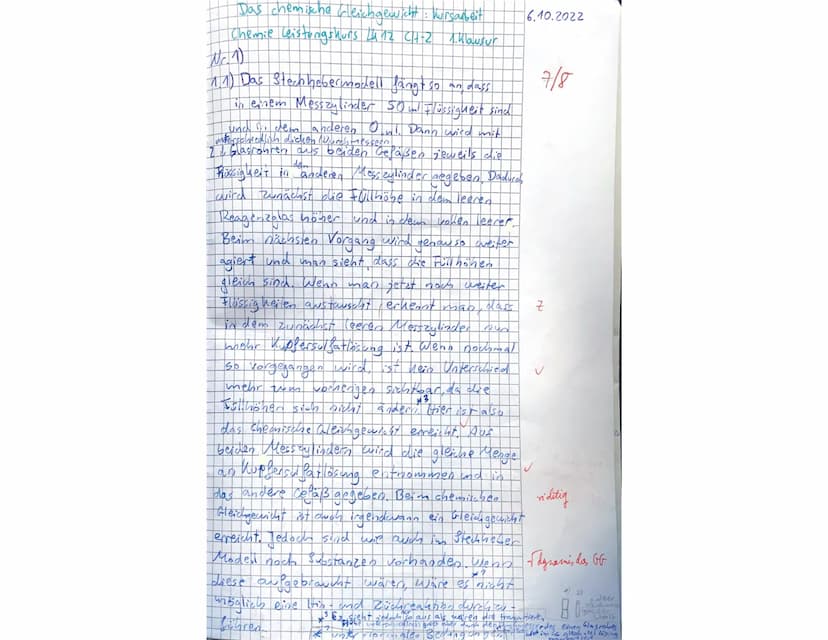 Das chemische Gleichgewicht: Kursarbeit
6.10.2022
Chemie Leistungskurs CH-2 1. Klausur
Nr. 1)
7/8
1.1) Das Stechhebermodell fängt so an, dass
in einem Messzylinder 50 ml Flüssigkeit sind
und in dem anderen 0 ml. Dann wird mit
unterschiedlich dicken Durchmessern
2 Glasrohren aus beiden Gefäßen jeweils die
Flüssigkeit in den anderen Messzylinder gegeben. Dadurch
wird zunächst die Füllhöhe in dem leeren
Reagenzglas höher und in dem vollen leerer.
Beim nächsten Vorgang wird genauso weiter
agiert und man sieht, dass die Füllhöhen
gleich sind. Wenn man jetzt noch weiter
Flüssigkeiten austauscht, erkennt man, dass
in dem zunächst leeren Messzylinder nun
mehr Kupfersulfatlösung ist. Wenn nochmal
so vorgegangen wird, ist kein Unterschied
mehr zum vorherigen sichtbar, da die
Füllhöhen sich nicht ändern. *3 Hier ist also
das chemische Gleichgewicht erreicht. Aus
beiden Messzylindern wird die gleiche Menge
an Kupfersulfatlösung entnommen und in
das andere Gefäß gegeben. Beim chemischen
richtig
Gleichgewicht ist auch irgendwann ein Gleichgewicht
erreicht. Jedoch sind wie auch im Stechheber
Modell noch Substanzen vorhanden. Wenn
dynamisches GG
diese aufgebraucht wären, wäre es nicht
möglich eine Hin- und Rückreaktion durchzu-
führen.